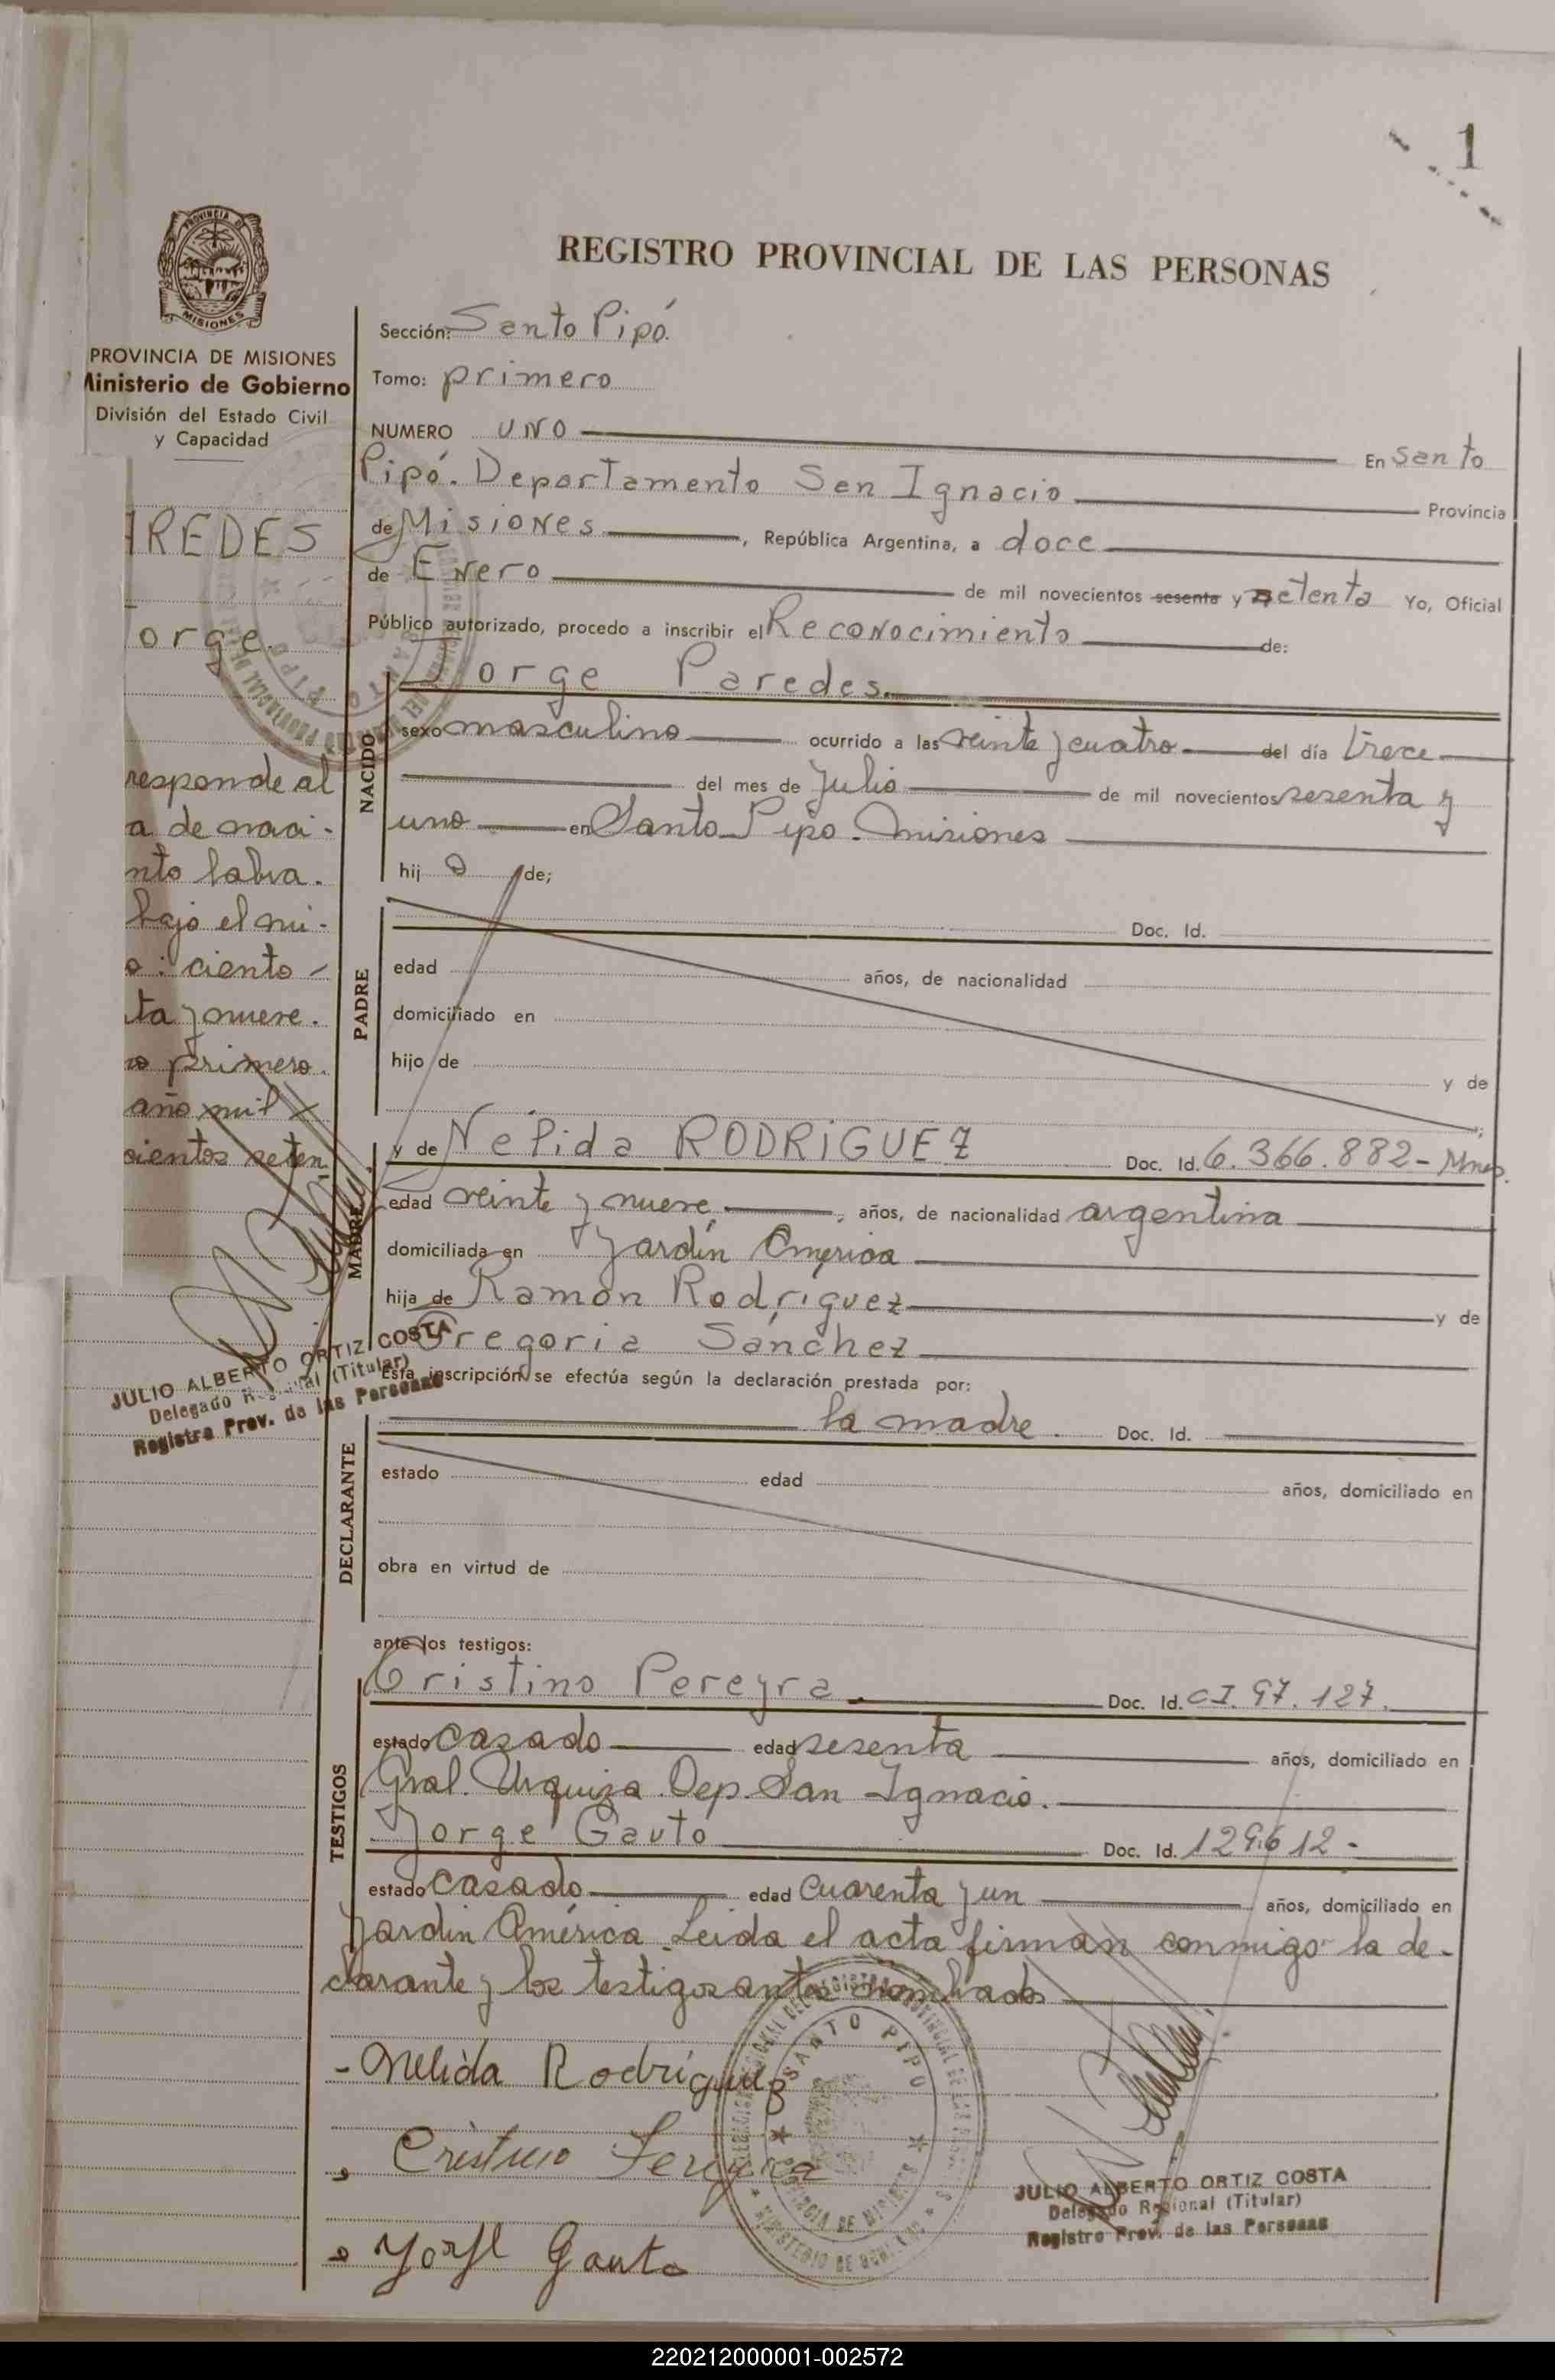 1
REGISTRO PROVINCIAL DE LAS PERSONAS
MISIONES
PROVINCIA DE MISIONES
Ministerio de Gobierno
División del Estado Civil
y Capacidad
REDES
orge.
responde al
a de naci-
nto labra.
bajo el nú-
o: ciento
ta y nueve.
primero.
año mil
cientos seten
JULIO ALBERTO ORTIZ COSTA
Delegado Regional (Titular)
Registro Prov. de las Personas
Sección: Santo Pipó.
Tomo: primero
NUMERO UNO En Santo
Pipó. Departamento San Ignacio Provincia
de Misiones, República Argentina, a doce
de Enero de mil novecientos sesenta y setenta Yo, Oficial
Público autorizado, procedo a inscribir el Reconocimiento de:
Jorge Paredes.
NACIDO
sexo masculino ocurrido a las veinte y cuatro del día trece
del mes de Julio de mil novecientos sesenta y
uno en Santo Pipo. Misiones
hij o de;
PADRE
Doc. Id.
edad años, de nacionalidad
domiciliado en
hijo de y de
MADRE
y de Nelida RODRIGUEZ Doc. Id. 6.366.882- Mnes.
edad veinte y nueve, años, de nacionalidad argentina
domiciliada en Jardín América
hija de Ramón Rodríguez y de
Gregoria Sánchez
Esta inscripción se efectúa según la declaración prestada por:
DECLARANTE
la madre. Doc. Id.
estado edad años, domiciliado en
obra en virtud de
ante los testigos:
TESTIGOS
Cristino Pereyra. Doc. Id. CI. 97.127.
estado casado edad sesenta años, domiciliado en
Gral. Urquiza. Dep. San Ignacio.
Jorge Gauto Doc. Id. 129.612-
estado casado edad cuarenta y un años, domiciliado en
Jardin América. Leida el acta firman conmigo la de-
clarante y los testigos antes nombrados
- Nelida Rodríguez
Cristino Pereyra
Jorge Gauto
SANTO PIPO
PROVINCIA DE MISIONES
MINISTERIO DE GOBIERNO
JULIO ALBERTO ORTIZ COSTA
Delegado Regional (Titular)
Registro Prov. de las Personas
220212000001-002572